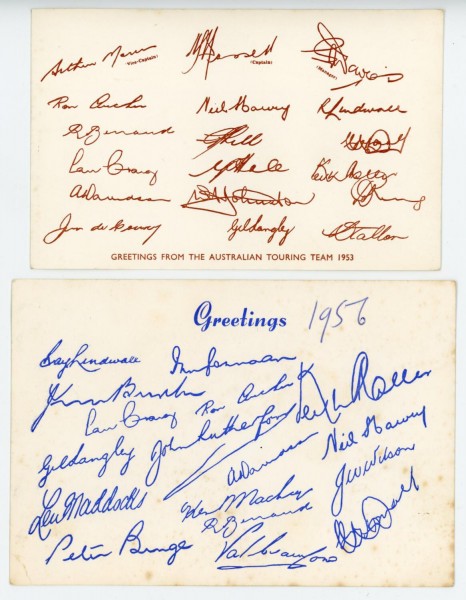 Arthur Morris
(Vice-Captain)
(Captain)
(Manager)
Ron Archer Neil Harvey R Lindwall
R Benaud
Ian Craig G Hole Keith Miller
A Davidson W A Johnston
Jim de Courcy Gil Langley D Tallon
GREETINGS FROM THE AUSTRALIAN TOURING TEAM 1953
Greetings 1956
Ray Lindwall Ian Johnson
Jim Burke
Ian Craig Ron Archer Keith Miller
Gil Langley John Rutherford Neil Harvey
A Davidson J W Wilson
Len Maddocks Ken Mackay
R Benaud
Peter Burge Pat Crawford